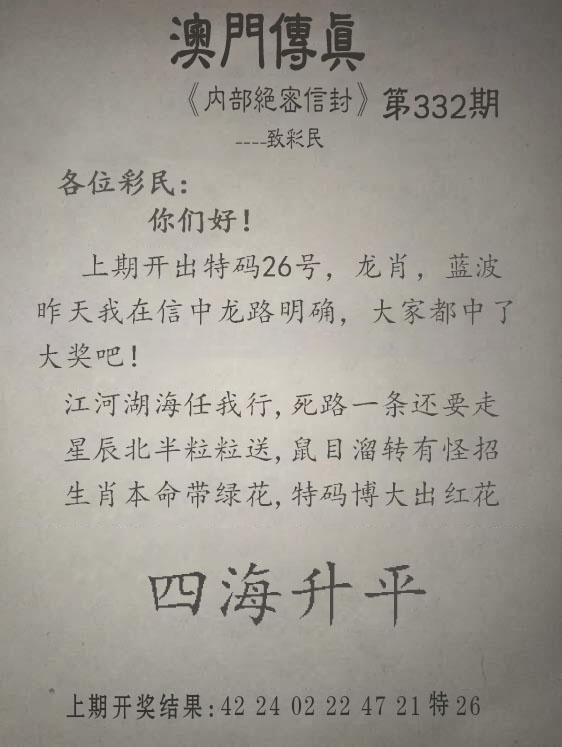 澳門傳眞
《内部絕密信封》第332期
----致彩民
各位彩民:
你们好!
上期开出特码26号，龙肖，蓝波
昨天我在信中龙路明确，大家都中了
大奖吧!
江河湖海任我行,死路一条还要走
星辰北半粒粒送,鼠目溜转有怪招
生肖本命带绿花,特码博大出红花
四海升平
上期开奖结果:42 24 02 22 47 21 特 26